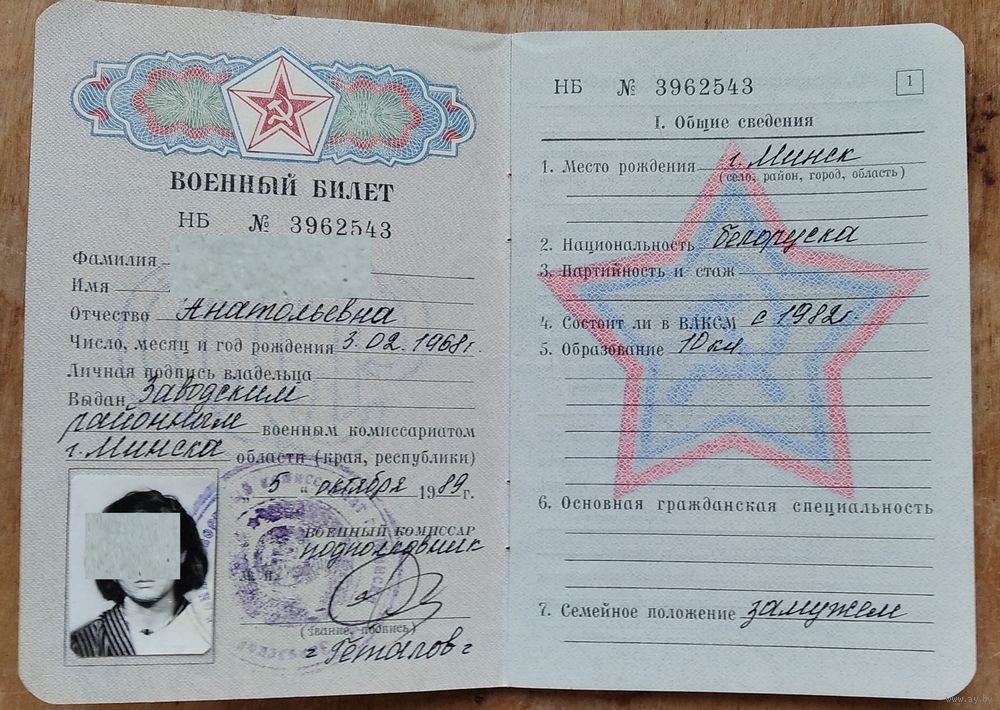 ВОЕННЫЙ БИЛЕТ
НБ № 3962543
Фамилия
Имя
Отчество Анатольевна
Число, месяц и год рождения 3.02.1968г.
Личная подпись владельца
Выдан Заводским
районным военным комиссариатом
г. Минска области (края, республики)
"5" октября 1989 г.
ВОЕННЫЙ КОМИССАР
подполковник
М. П.
(звание, подпись)
НБ № 3962543
1
I. Общие сведения
1. Место рождения г. Минск
(село, район, город, область)
2. Национальность белоруска
3. Партийность и стаж
4. Состоит ли в ВЛКСМ с 1982г.
5. Образование 10 кл.
6. Основная гражданская специальность
7. Семейное положение замужем
www.ay.by